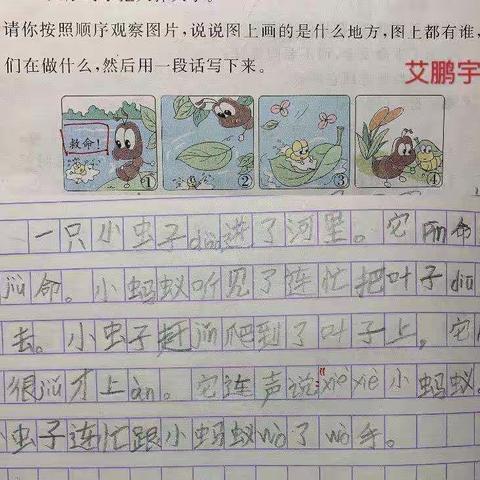 请你按照顺序观察图片,说说图上画的是什么地方,图上都有谁,
们在做什么,然后用一段话写下来。
艾鹏宇
救命!
① ② ③ ④
一只小虫子diū进了河里。它pīn命
jiù命。小蚂蚁听见了连忙把叶子diū
去。小虫子赶jǐn爬到了叶子上,它
很jiǔ才上àn。它连声说:“xièxiè小蚂蚁。
虫子连忙跟小蚂蚁wò了wò手。